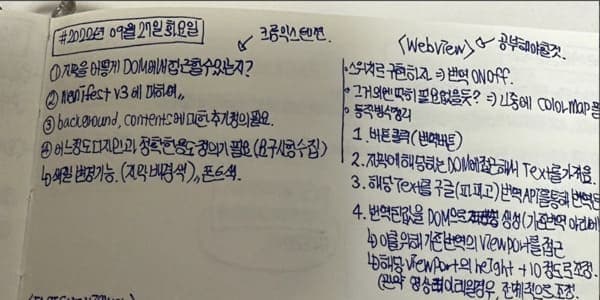 #2022년 09월 27일 화요일
크롬익스텐션.
① 자막을 어떻게 DOM에서 접근할 수 있는지?
② Manifest v3에 대하여,,
③ background, contents에 대한 추가정의 필요.
④ 어느정도 디자인과 정확한 용도 정의가 필요 (요구사항 수집)
↳ 외관 변경가능. (자막 배경색), 폰트색.
<Webview> 공부해야할것.
• 스위치로 구현하자 ⇒ 번역 ON OFF.
• 그거외엔 딱히 필요없을듯? ⇒ 나중에 color map
• 동작방식정리
1. 버튼클릭 (번역버튼)
2. 자막에 해당하는 DOM에 접근해서 Text를 가져옴.
3. 해당 Text를 구글(파파고) 번역 API를 통해 번역
4. 번역된값을 DOM으로 생성 (기존번역 아래에
↳ 이를 위해 기존번역의 viewport를 접근
↳ 해당 viewport의 height +10 정도로 조정.
(만약 영상 이러일경우, 전체적으로 조정.